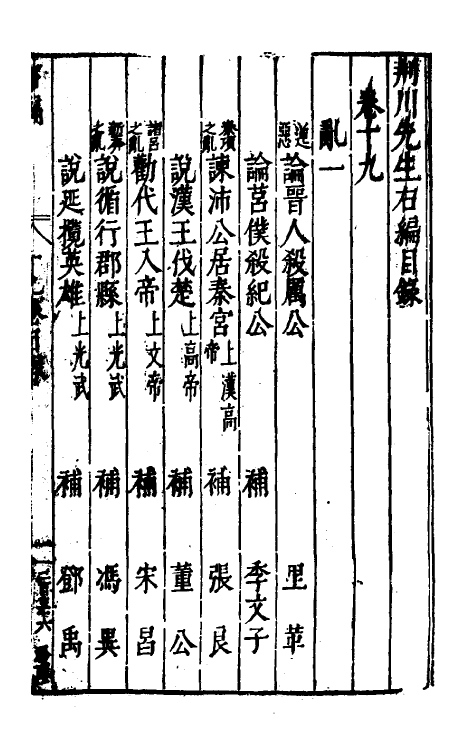 荆川先生右編目錄
卷十九
亂一
逆惡 論晉人殺厲公 里革
論莒僕殺紀公 補 季文子
秦項之亂 諫沛公居秦宮 上漢高帝 補 張良
說漢王伐楚 上高帝 補 董公
諸呂之亂 勸代王入帝 上文帝 補 宋昌
新莽之亂 說循行郡縣 上光武 補 馮異
說延攬英雄 上光武 補 鄧禹